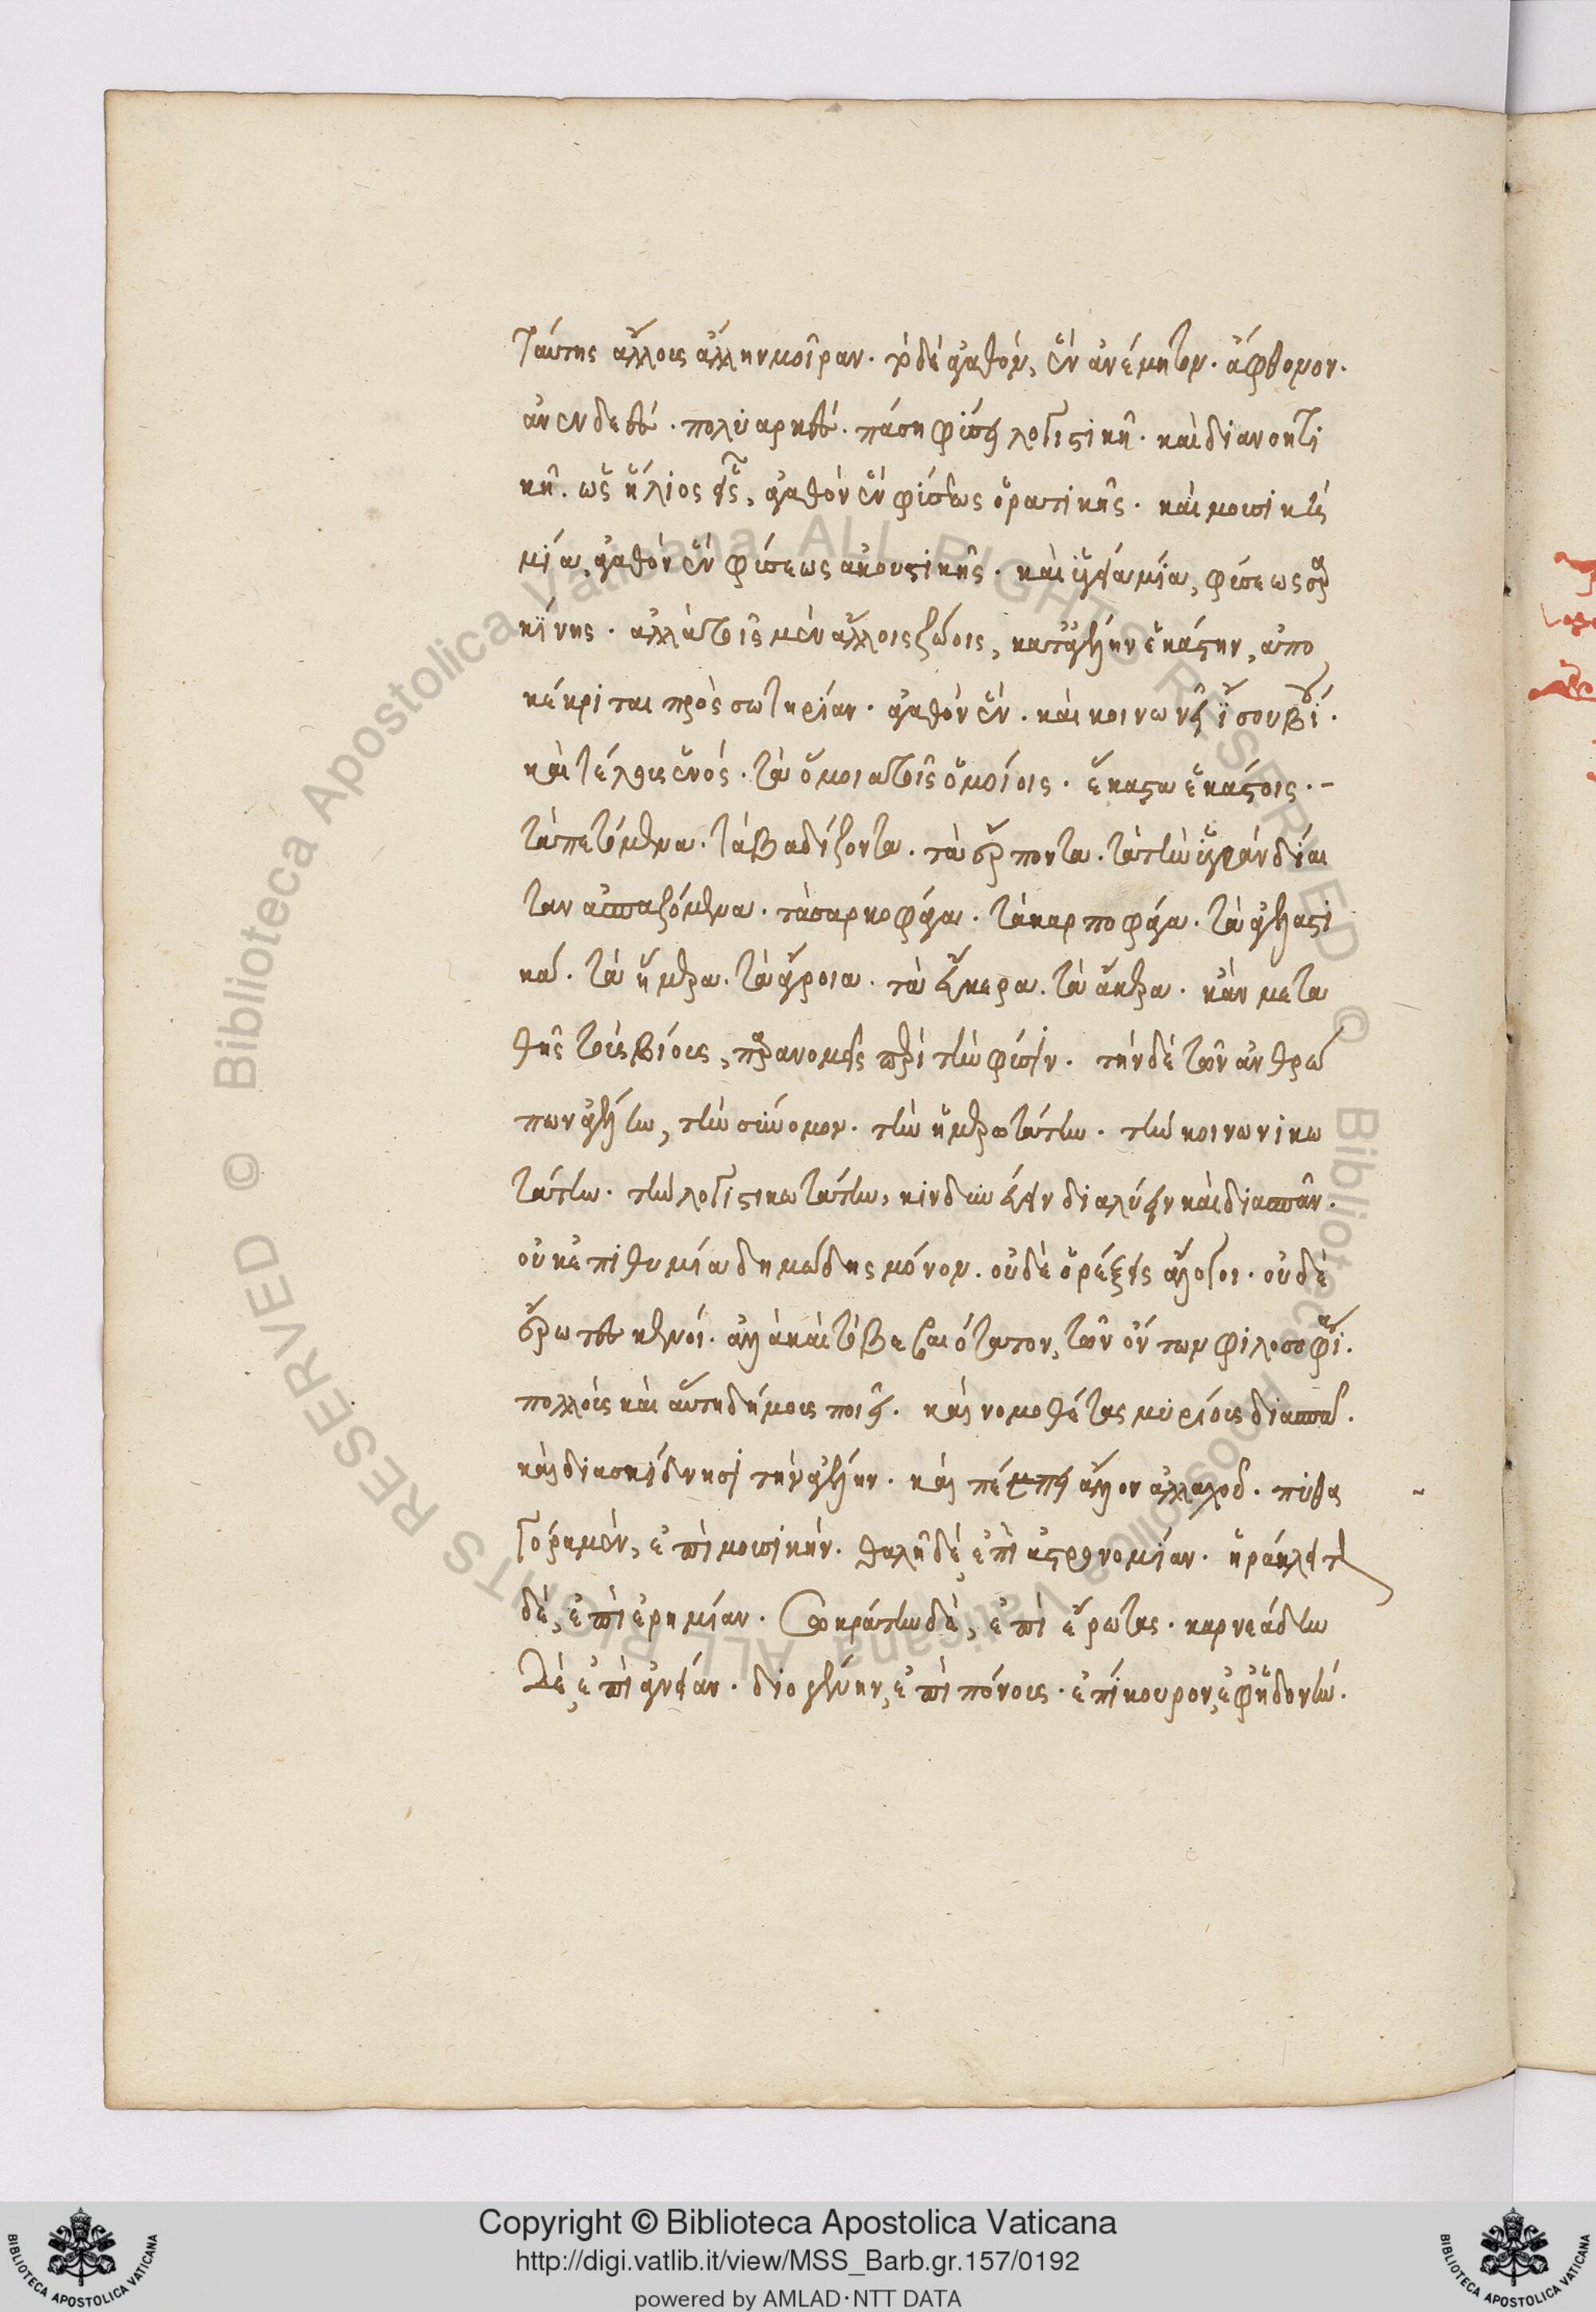 ταύτης ἄλλοις ἄλλην μοῖραν. τὸ δὲ ἀγαθὸν, ἓν ἀνέμητον. ἄφθονον.
ἀνενδεὲς. πολυαρκὲς. πάσῃ φύσει λογιστικῇ. καὶ διανοητι
κῇ. ὡς ἥλιος εἷς, ἀγαθὸν ἓν φύσεως ὁρατικῆς. καὶ μουσικὴ
μία, ἀγαθὸν ἓν φύσεως ἀκουστικῆς. καὶ ὑγεία μία, φύσεως σαρ
κίνης. ἀλλὰ τοῖς μὲν ἄλλοις ζώοις, κατ' ἀγέλην ἑκάστην, ἀπο
κέκριται πρὸς σωτηρίαν. ἀγαθὸν ἓν. καὶ κοινωνεῖ ἴσου βίου.
καὶ τέλους ἑνός. τὰ ὅμοια τοῖς ὁμοίοις. ἕκαστα ἑκάστοις.
τὰ πετόμενα. τὰ βαδίζοντα. τὰ ἕρποντα. τὰ τὴν ὑγρὰν δίαι
ταν ἀσπαζόμενα. τὰ σαρκοφάγα. τὰ καρποφάγα. τὰ ἀγελαστι
κά. τὰ ἥμερα. τὰ ἄγροικα. τὰ εὔκερα. τὰ ἄκερα. κἂν μετα
θῇς τοὺς βίους, παρανομεῖς περὶ τὴν φύσιν. τὴν δὲ τῶν ἀνθρώ
πων ἀγέλην, τὴν σύννομον. τὴν ἡμερωτάτην. τὴν κοινωνικω
τάτην. τὴν λογιστικωτάτην, κινδυνεύει διαλύειν καὶ διασπᾶν.
οὐκ ἐπιθυμία δημώδης μόνον. οὐδὲ ὀρέξεις ἄλογοι. οὐδὲ
ἔρωτες κενοί. ἀλλὰ καὶ τὸ βεβαιότατον, τῶν ὄντων φιλοσοφία.
πολλοὺς καὶ αὕτη δήμους ποιεῖ. καὶ νομοθέτας μυρίους διασπᾷ.
καὶ διασκίδνησι τὴν ἀγέλην. καὶ πέμπει ἄλλον ἀλλαχοῦ. πυθα
γόραν μὲν, ἐπὶ μουσικήν. θαλῆν δὲ, ἐπὶ ἀστρονομίαν. ἡράκλειτον
δὲ, ἐπὶ ἐρημίαν. Σωκράτην δὲ, ἐπὶ ἔρωτας. καρνεάδην
Δὲ, ἐπὶ ἄγνοιαν. διογένην, ἐπὶ πόνους. ἐπίκουρον, ἐφ' ἡδονήν.
Copyright © Biblioteca Apostolica Vaticana
http://digi.vatlib.it/view/MSS_Barb.gr.157/0192
powered by AMLAD·NTT DATA